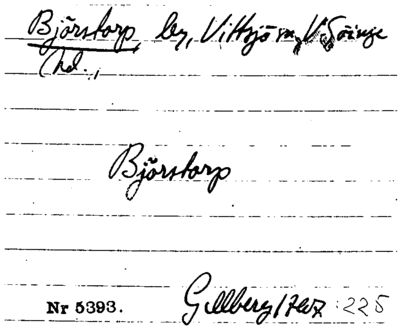 Björstorp, by, Vittsjö sn, V. Göinge
hd.,
Björstorp
Nr 5393. Gillberg 1767: 225